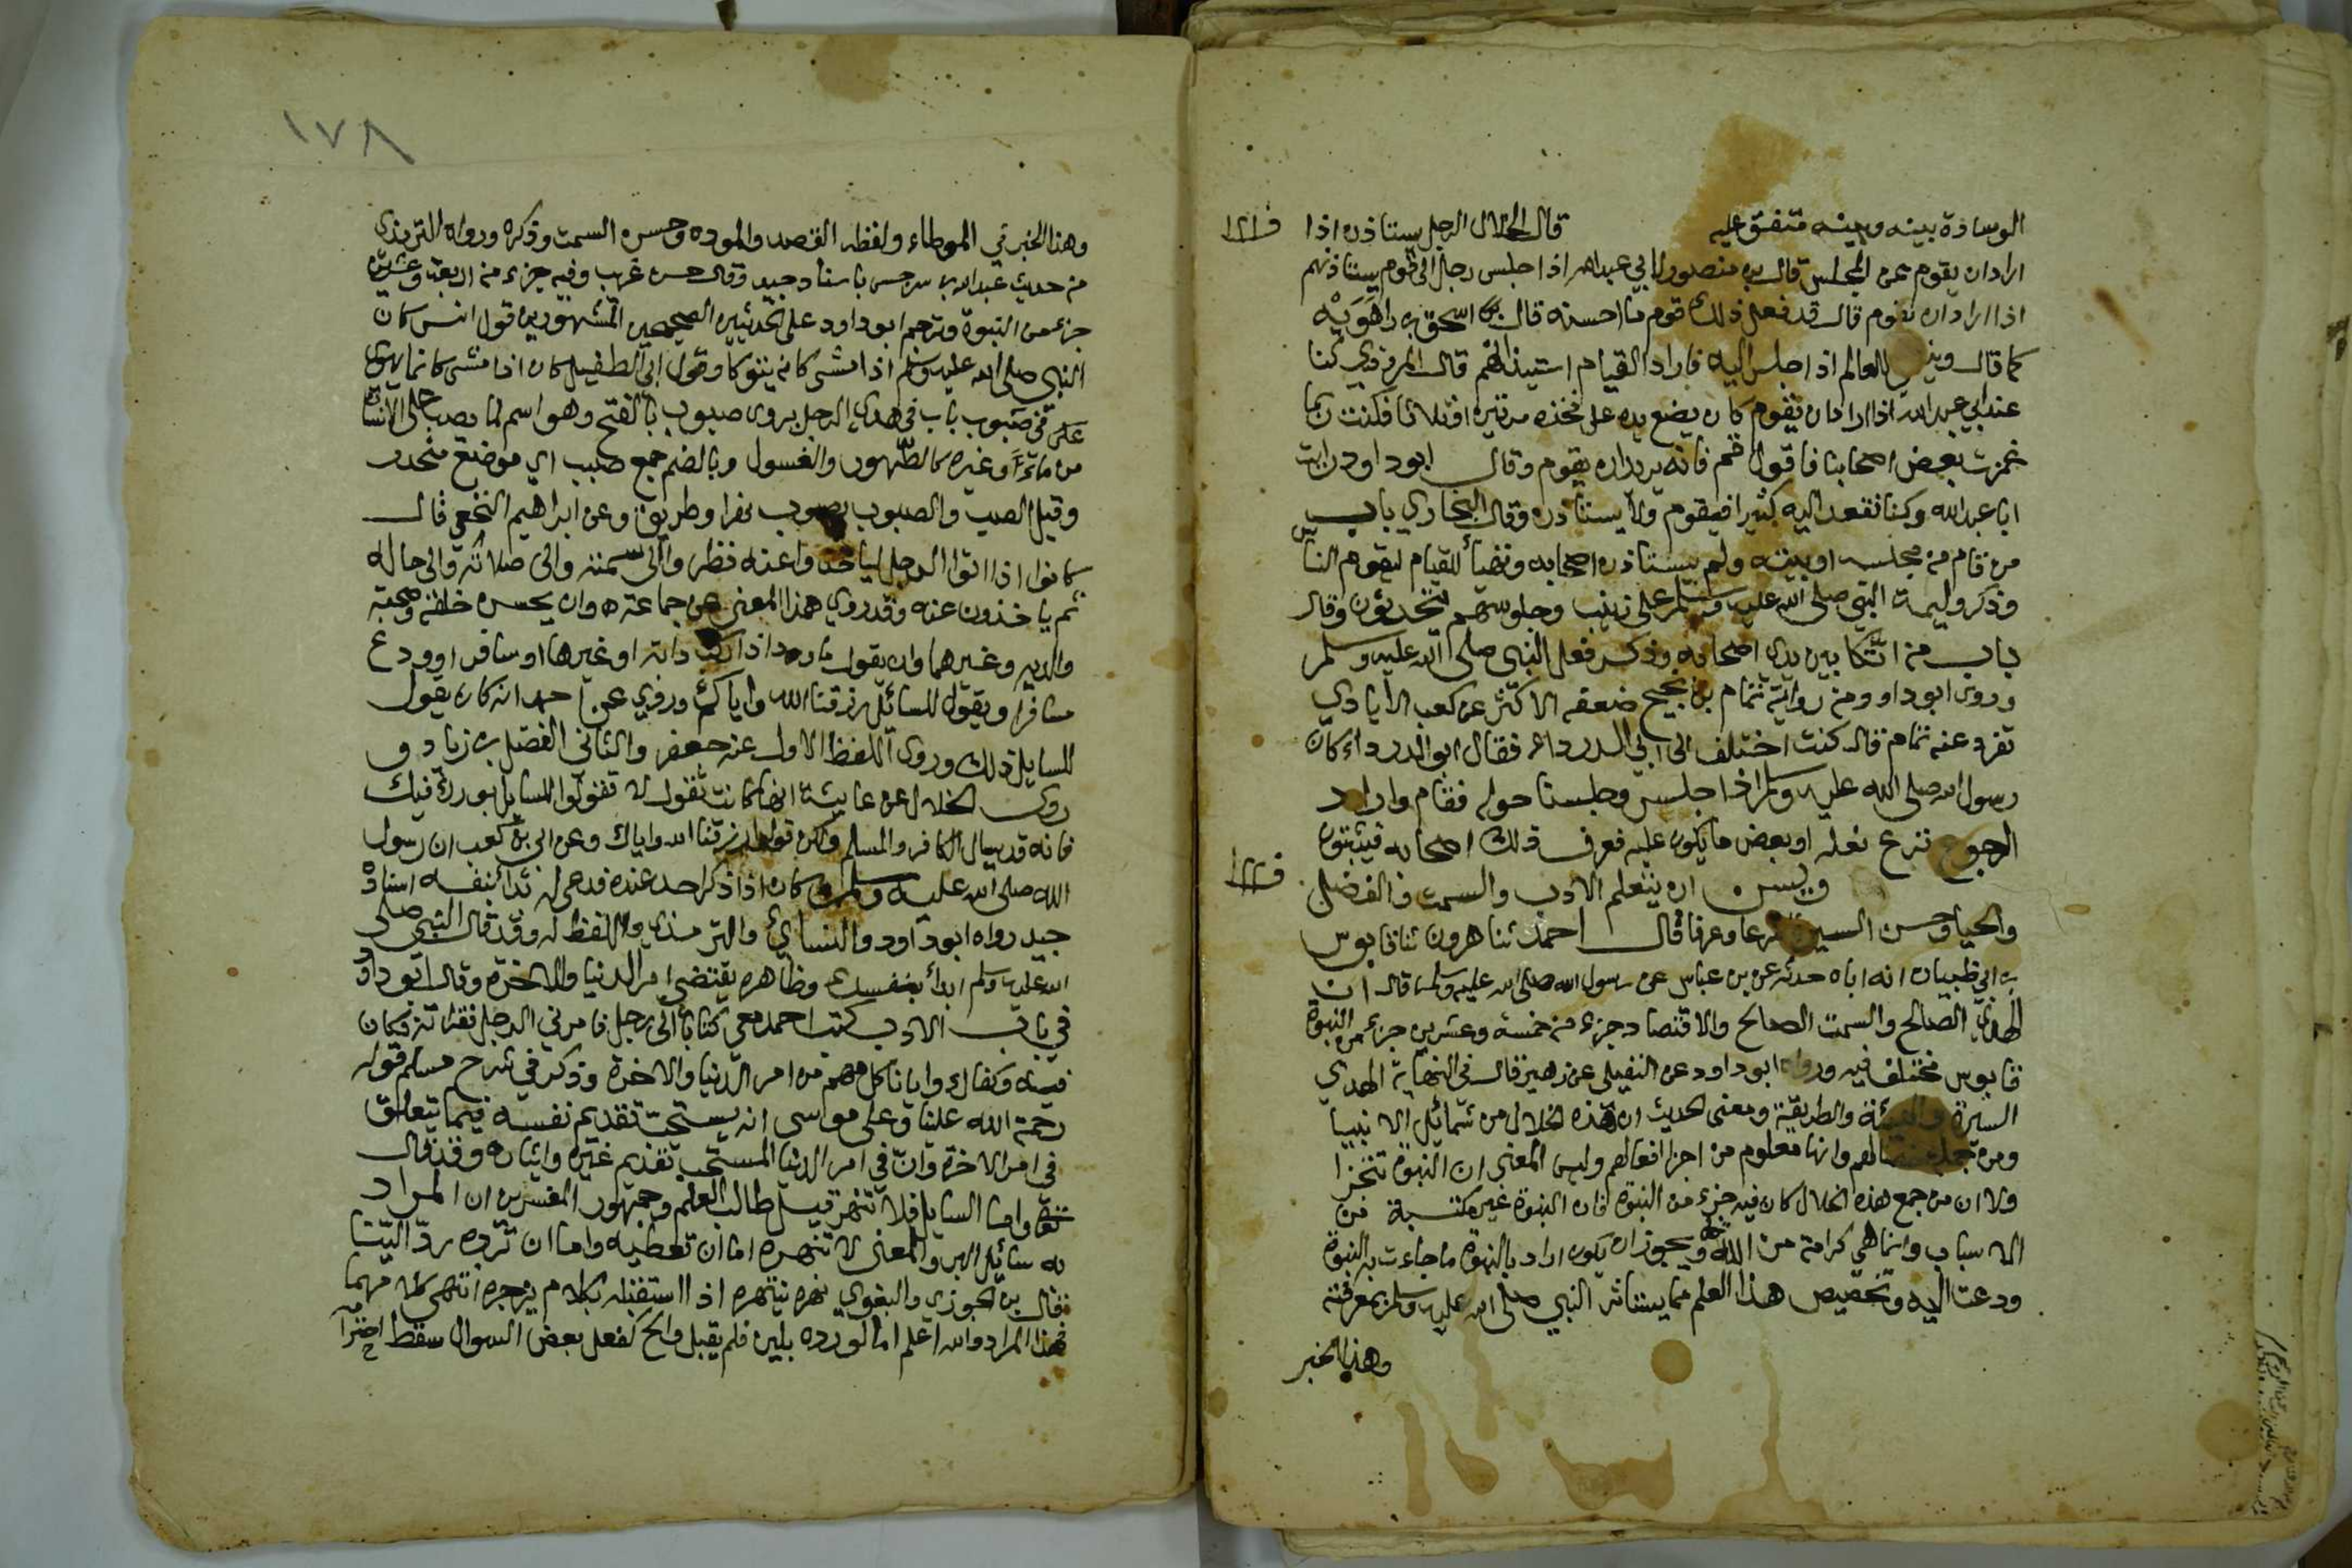 الوسادة بينه وبينه متفق عليه قال الخلال الرجل يستاذن اذا
اراد ان يقوم من المجلس قال بن منصور لابي عبدالله اذا جلس رجل الى قوم يستاذنهم
اذا اراد ان يقوم قال قد فعل ذلك قوم ما احسنه قال اسحق بن راهَوَيْه
كما قال العالم اذا جلس اليه فاراد القيام استيذانهم قال المروزي كنا
عند ابي عبدالله اذا اراد ان يقوم كان يضع يده على فخذه مرتين او ثلاثا فكنت ربما
غمزت بعض اصحابنا فاقول قم فانه يريد ان يقوم وقال ابو داود رايت
ابا عبدالله وكنا نقعد اليه كثيرا فيقوم ولا يستاذن وقال البخاري باب
من قام من مجلسه او بيته ولم يستاذن اصحابه وتهيأ للقيام ليقوم الناس
وذكر وليمة النبي صلى الله عليه وسلم على زينب وجلوسهم يتحدثون وقال
باب من اتكا بين يدي اصحابه وذكر فعل النبي صلى الله عليه وسلم
وروى ابو داود من رواية تمام بن نجيح ضعفه الاكثر عن كعب الايادي
تفرد عنه تمام قال كنت اختلف الى ابي الدرداء فقال ابو الدرداء كان
رسول الله صلى الله عليه وسلم اذا جلس وجلسنا حوله فقام واراد
الرجوع نزع نعله او بعض ما يكون عليه فعرف ذلك اصحابه فيثبتون
ويسن ان يتعلم الادب والسمت والفضل
والحيا وحسن السيرة شرعا وعرفا قال احمد ثنا هرون ثنا قابوس
بن ابي ظبيان ان اباه حدثه عن بن عباس عن رسول الله صلى الله عليه وسلم قال ان
الهدي الصالح والسمت الصالح والاقتصاد جزء من خمسة وعشرين جزء من النبوة
قابوس مختلف فيه ورواه ابو داود عن النفيلي عن زهير قال في النهاية الهدي
السيرة والهيئة والطريقة ومعنى الحديث ان هذه الخلال من شمائل الانبيا
ومن جملة خصالهم وانها معلوم من اجزا افعالهم وليس المعنى ان النبوة تتجزا
ولا ان من جمع هذه الخلال كان فيه جزء من النبوة فان النبوة غير مكتسبة من
الاسباب وانما هي كرامة من الله ويجوز ان يكون اراد بالنبوة ما جاءت به النبوة
ودعت اليه وتخصيص هذا العلم مما يستاثر النبي صلى الله عليه وسلم بمعرفته
وهذا الخبر
١٧٨
وهذا الخبر في الموطاء ولفظه القصد والتوده وحسن السمت وذكره ورواه الترمذي
من حديث عبدالله بن سرجس باسناد جيد وقال حسن غريب وفيه جزء من اربعة وعشرين
جزء من النبوة وترجم ابو داود على الحديثين الصحيحين المشهورين قول انس كان
النبي صلى الله عليه وسلم اذا مشى كانه يتوكا وقول ابي الطفيل كان اذا مشى كانما يهوي
في صَبوب باب في هدي الرجل يروى صبوب بالفتح وهو اسم لما يصب على الانسان
من ماء وغيره كالطهور والغسول وبالضم جمع صبب اي موضع منحدر
وقيل الصب والصبوب تصوب نهر او طريق وعن ابراهيم النخعي قال
كانوا اذا اتوا الرجل لياخذوا عنه نظروا الى سمته والى صلاته والى حاله
ثم ياخذون عنه وقد روي هذا المعنى عن جماعة وان يحسن خلقه وصحبة
والديه وغيرهما وان يقول ما ورد اذا ركب دابة او غيرها او سافر او ودع
مسافرا ويقول للسائل رزقنا الله واياك وروي عن احمد انه كان يقول
للسايل ذلك وروى اللفظ الاول عنه جعفر والثاني الفضل بن زياد و
روى الخلال عن عايشة انها كانت تقول لا تقولوا للسايل بورك فيك
فانه قد يسال الكافر والمسلم ولكن قولوا رزقنا الله واياك وعن ابي بن كعب ان رسول
الله صلى الله عليه وسلم كان اذا ذكر احد عنده فدعى له بدا بنفسه اسناده
جيد رواه ابو داود والنساي والترمذي واللفظ له وقد قال النبي صلى
الله عليه وسلم ابدأ بنفسك وظاهره يقتضي امر الدنيا والاخرة وقال ابو داود
في باب الادب كتب احمد معي كتابا الى رجل فامرني الرجل فقراته فكان
فيه وكفاك وايانا كل مهم من امر الدنيا والاخرة وذكر في شرح مسلم قوله
رحمة الله علينا وعلى موسى انه يستحب تقديم نفسه فيما يتعلق
في امر الاخرة وان في امر الدنيا المستحب تقديم غيره وايثاره وقد قال
تعالى واما السايل فلا تنهر قيل طالب العلم وجمهور المفسرين ان المراد
به سائل البر والمعنى لا تنهره اما ان تعطيه واما ان ترده ردا لينا
قال بن الجوزي والبغوي نهره ينهره اذا استقبله بكلام يزجره انتهى كلامهما
فهذا المراد والله اعلم اما لو رده بلين فلم يقبل والح كفعل بعض السوال سقط احترامه